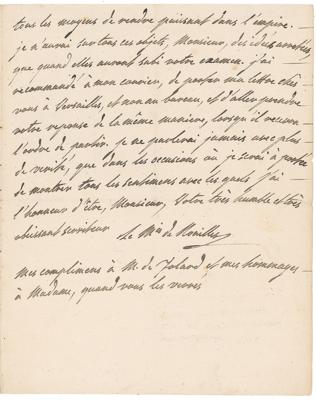 tous les moyens de rendre puissant dans l'empire.
je n'aurai sur tous ces objets, Monsieur, des idées arrêtées,
que quand elles auront subi notre examen. j'ai
recommandé à mon courier, de porter ma lettre chès
vous à Versailles, et non au bureau, et d'aller prendre
votre reponse de la même maniere, lorsqu'il recevra
l'ordre de partir. je ne parlerai jamais avec plus
de verité, que dans les occasions où je serai à portée
de montrer tous les sentimens avec les quels j'ai
l'honneur d'être, Monsieur, Votre très humble et très
obeissant serviteur
Le Mis de Noailles
Mes complimens à M. de et mes hommages
à Madame, quand vous les verrés